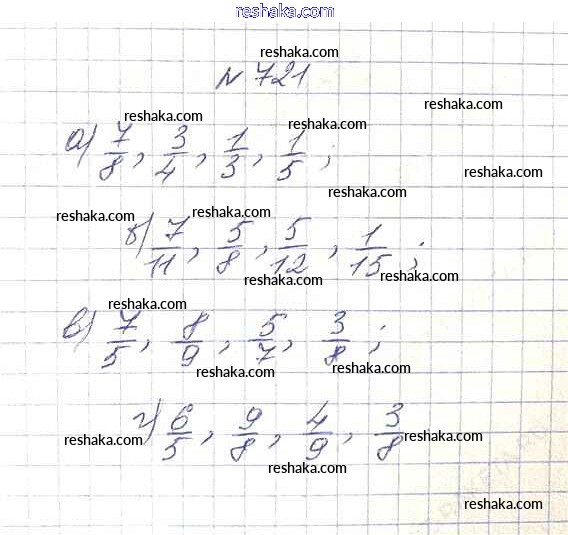 reshaka.com
reshaka.com
№ 721
reshaka.com
reshaka.com reshaka.com
а) 7/8, 3/4, 1/3, 1/5;
reshaka.com
reshaka.com
reshaka.com reshaka.com
б) 7/11, 5/8, 5/12, 1/15;
reshaka.com reshaka.com
reshaka.com
в) 7/5, 8/9, 5/7, 3/8;
reshaka.com reshaka.com
reshaka.com
г) 6/5, 9/8, 4/9, 3/8
reshaka.com reshaka.com
reshaka.com
reshaka.com